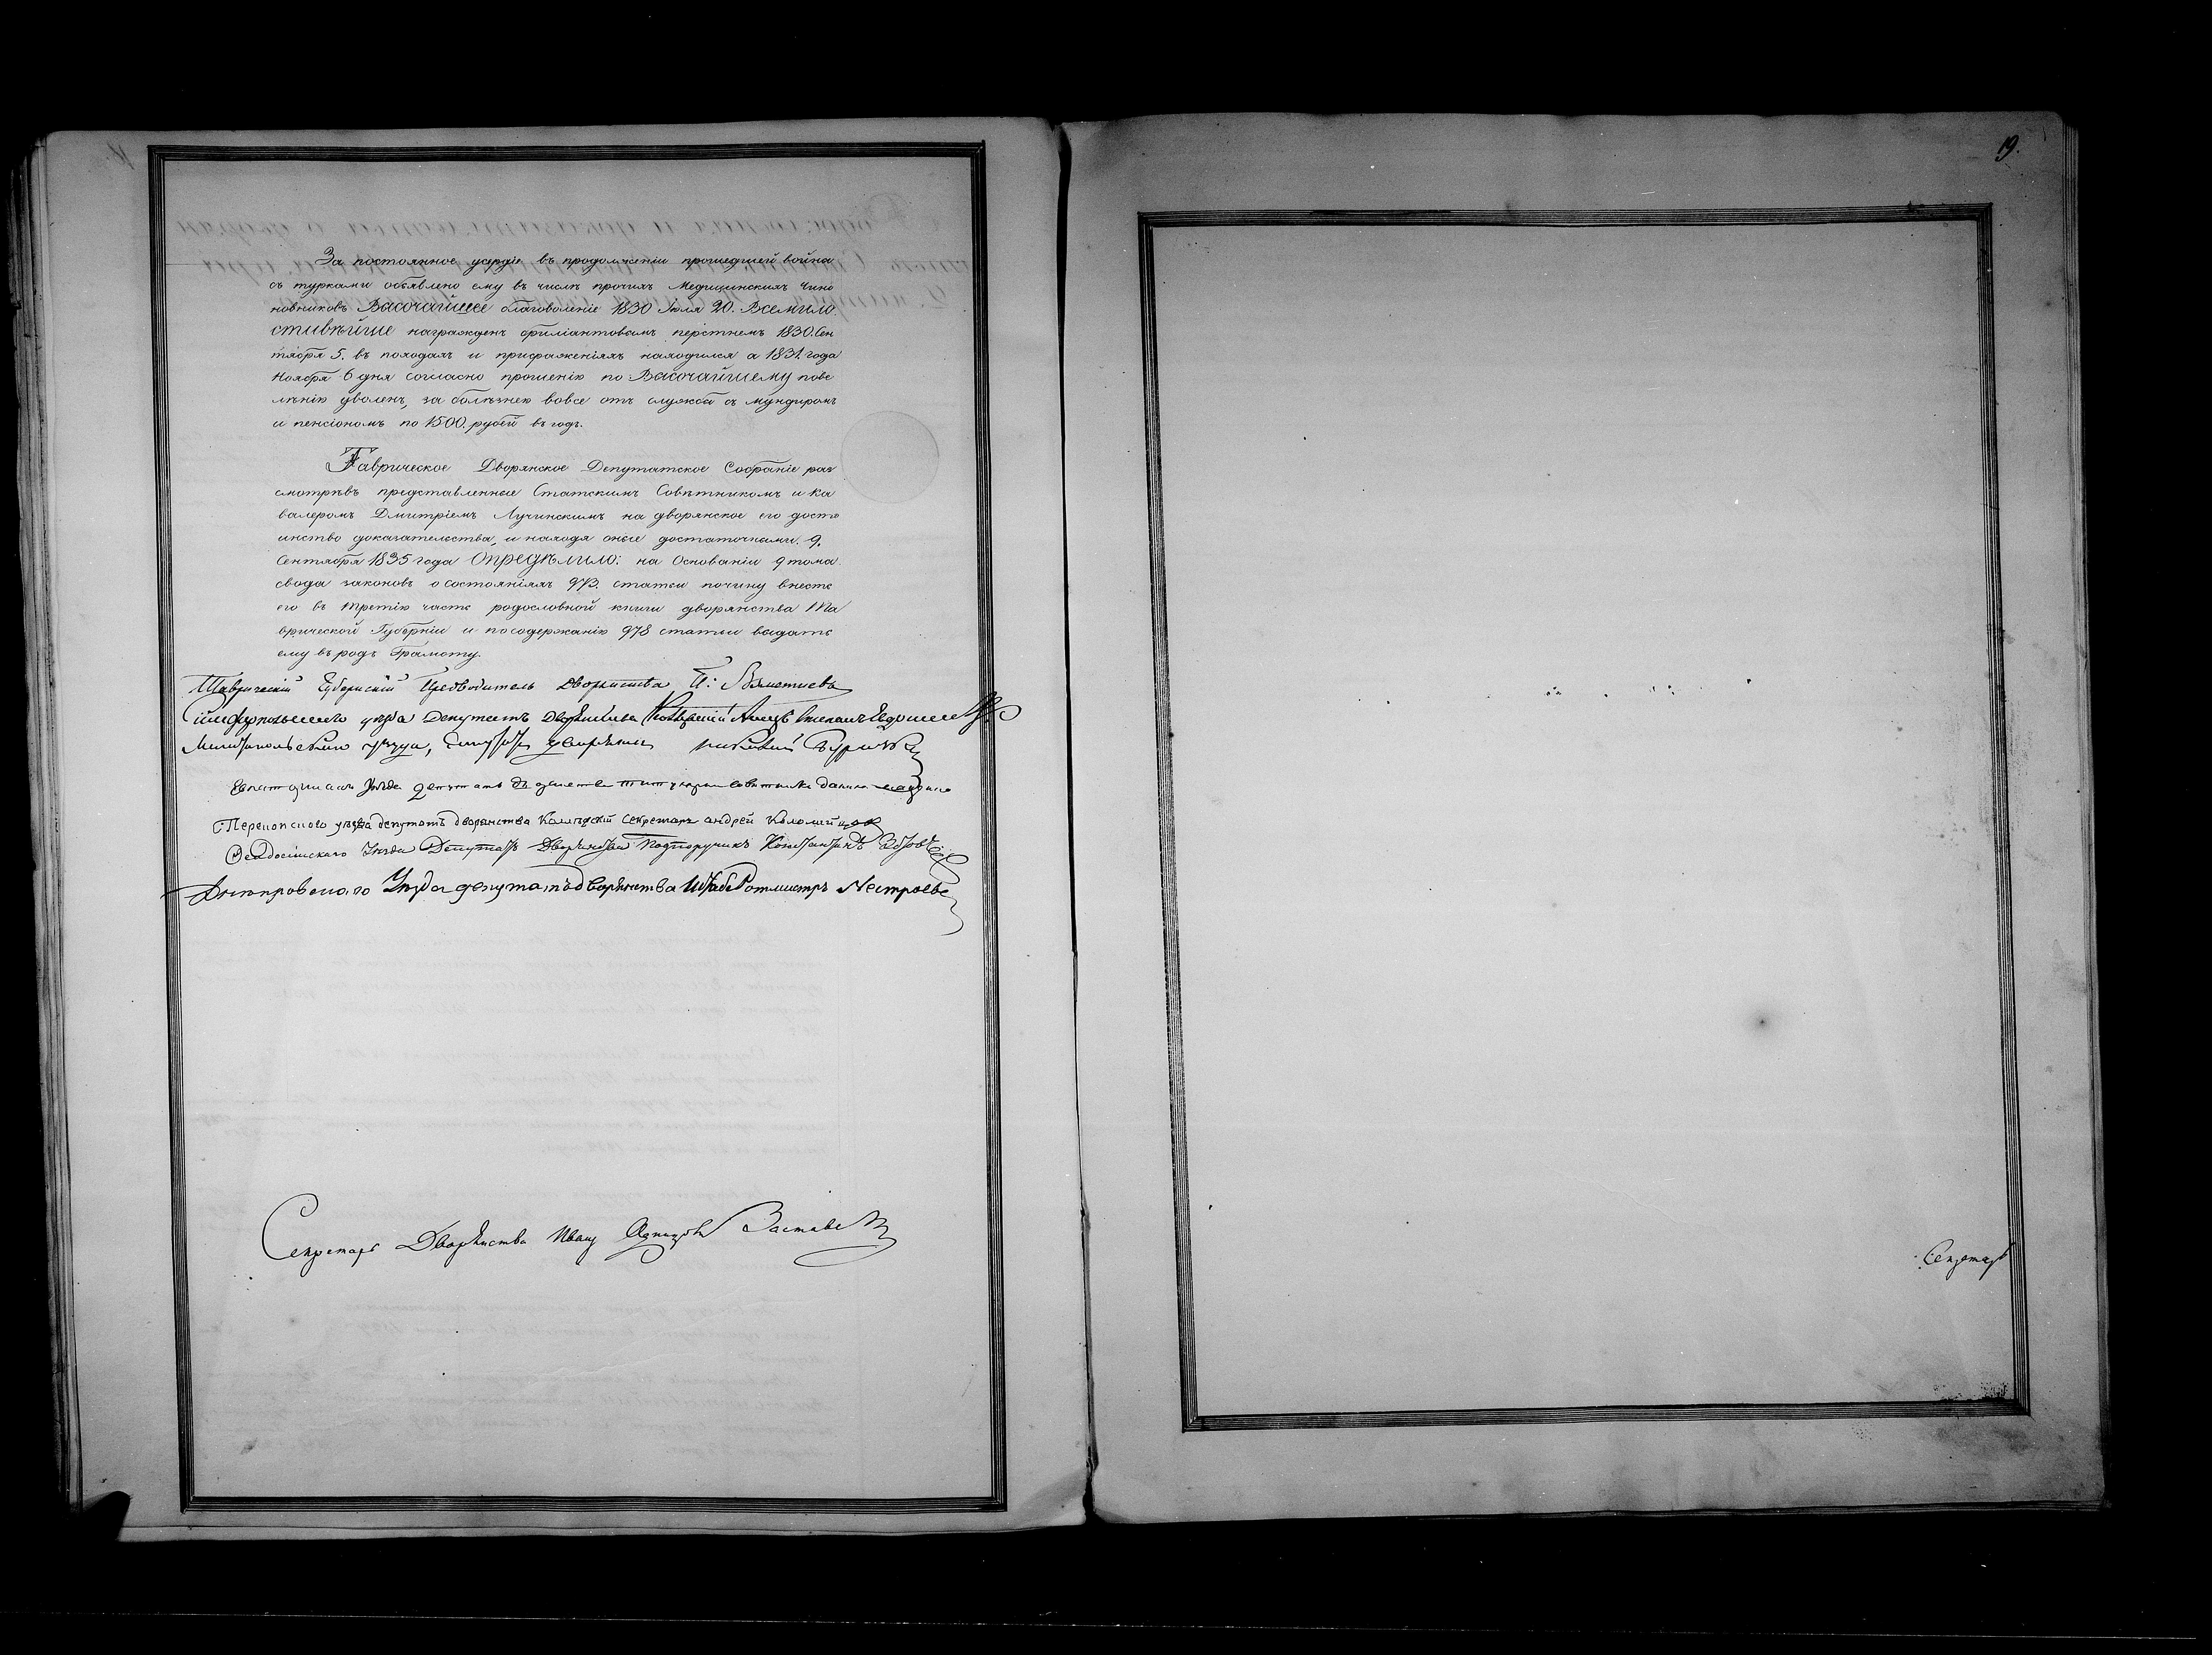 За постоянное усердіе въ продолженіи прошедшей войны
съ турками объявлено ему въ числѣ прочихъ Медицинскихъ Чино
новниковъ Высочайшее благоволеніе 1830 Іюля 20. Всемило
стивѣйше награжденъ бриліантовымъ перстнемъ 1830. Сен
тября 5. въ походахъ и присраженіяхъ находился а 1831. года
Ноября 6 дня согласно прошенію по Высочайшему пове
лѣнію уволенъ, за болѣзнею вовсе отъ службы съ мундиромъ
и пенсіономъ по 1500. рублей въ годъ.
Таврическое Дворянское Депутатское Собраніе раз
смотрѣвъ представленные Статскимъ Совѣтникомъ и ка
валеромъ Дмитріемъ Лучинскимъ на дворянское его досто
инство доказательства, и находя оные достаточными. 9.
Сентября 1835 года Опредѣлило: на Основаніи 9 тома
свода законовъ о состояніяхъ 973. статьи по чину внесть
его въ третію часть родословной книги дворянства Та
врической Губерніи и по содержанію 978 статьи выдать
ему въ родъ Грамоту.
Таврическій Губернскій Предводитель Дворянства
Симферопольскаго уѣзда Депутатъ Дворянства
Мелитопольскаго уѣзда,
Уѣзда
Перекопскаго уѣзда депутатъ дворянства Колежскій Секретарь андрей
Феодосійскаго Уѣзда Депутатъ Дворянства Подпоручикъ Константинъ
Днепровскаго Уѣзда депутатъ дворянства Штабс Ротмистръ
Секретарь Дворянства Иванъ
19.
Секретарь